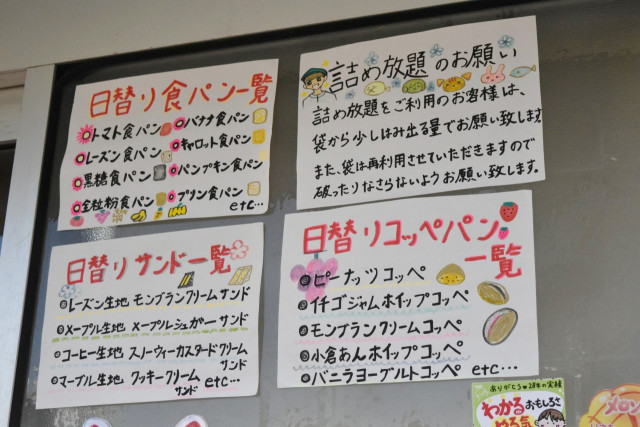 日替り食パン一覧
トマト食パン
バナナ食パン
レーズン食パン
キャロット食パン
黒糖食パン
パンプキン食パン
全粒粉食パン
プリン食パン
etc…
詰め放題のお願い
詰め放題をご利用のお客様は、
袋から少しはみ出る量でお願い致します
また、袋は再利用させていただきますので
破ったりなさらないようお願い致します。
日替りサンド一覧
レーズン生地 モンブランクリームサンド
メープル生地 メープルシュガーサンド
コーヒー生地 スリーヴィーカスタードクリーム
サンド
マーブル生地 クッキークリーム
サンド etc…
日替りコッペパン
一覧
ピーナッツコッペ
イチゴジャムホイップコッペ
モンブランクリームコッペ
小倉あんホイップコッペ
バニラヨーグルトコッペ etc…
ありがとう 28年の実績
わかるおもしろさ
やる気
メロン